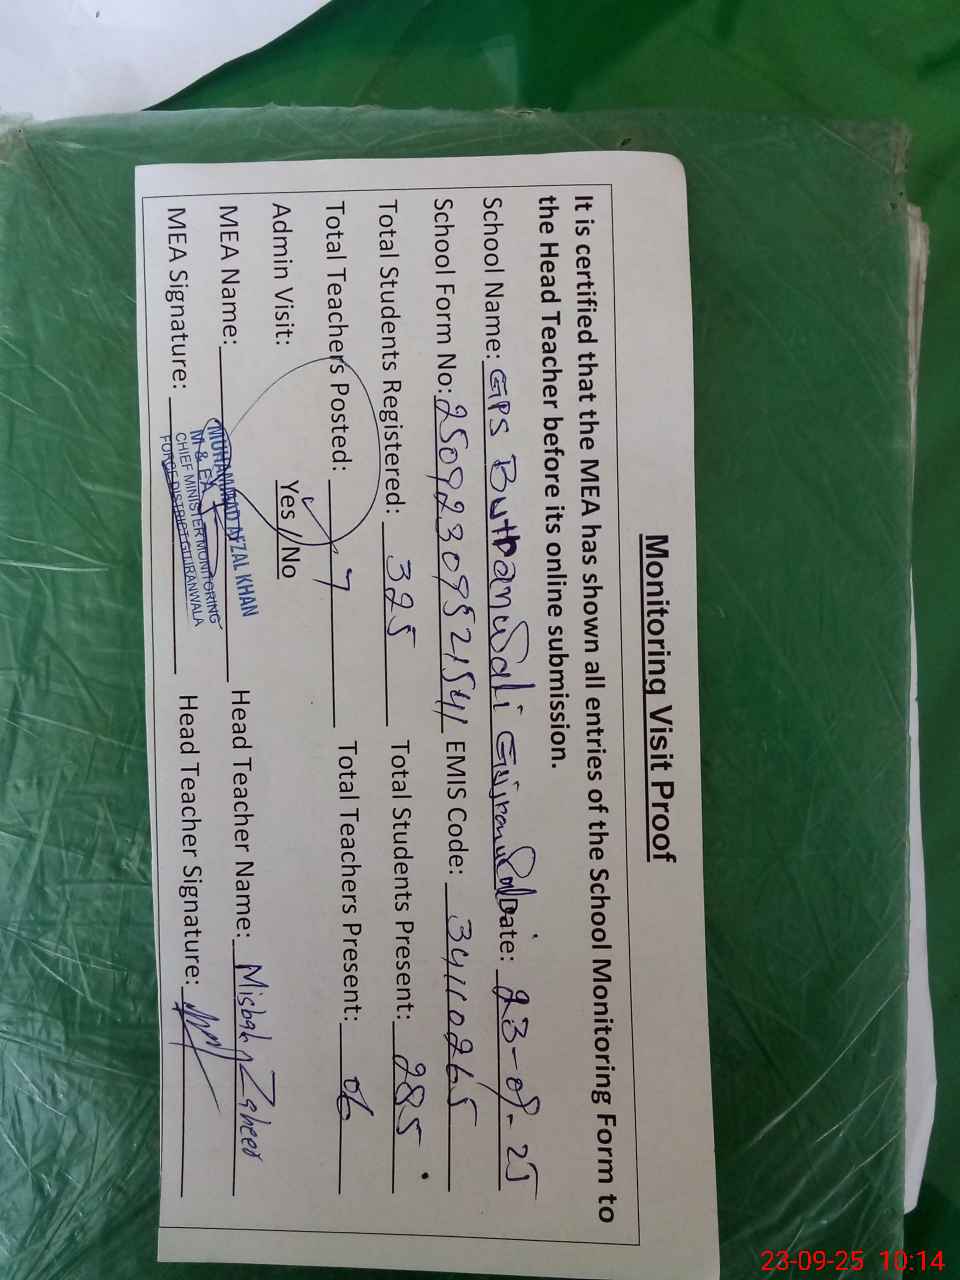 Monitoring Visit Proof
It is certified that the MEA has shown all entries of the School Monitoring Form to
the Head Teacher before its online submission.
School Name: GPS Buttranwali Gujranwala Date: 23-09-25
School Form No: 25092309521541 EMIS Code: 34110265
Total Students Registered: 325 Total Students Present: 285
Total Teachers Posted: 7 Total Teachers Present: 06
Admin Visit: Yes / No
MEA Name: MUHAMMAD AFZAL KHAN Head Teacher Name: Misbah Zaheer
M & EA
CHIEF MINISTER MONITORING
FORCE DISTRICT GUJRANWALA
MEA Signature: Head Teacher Signature:
23-09-25 10:14